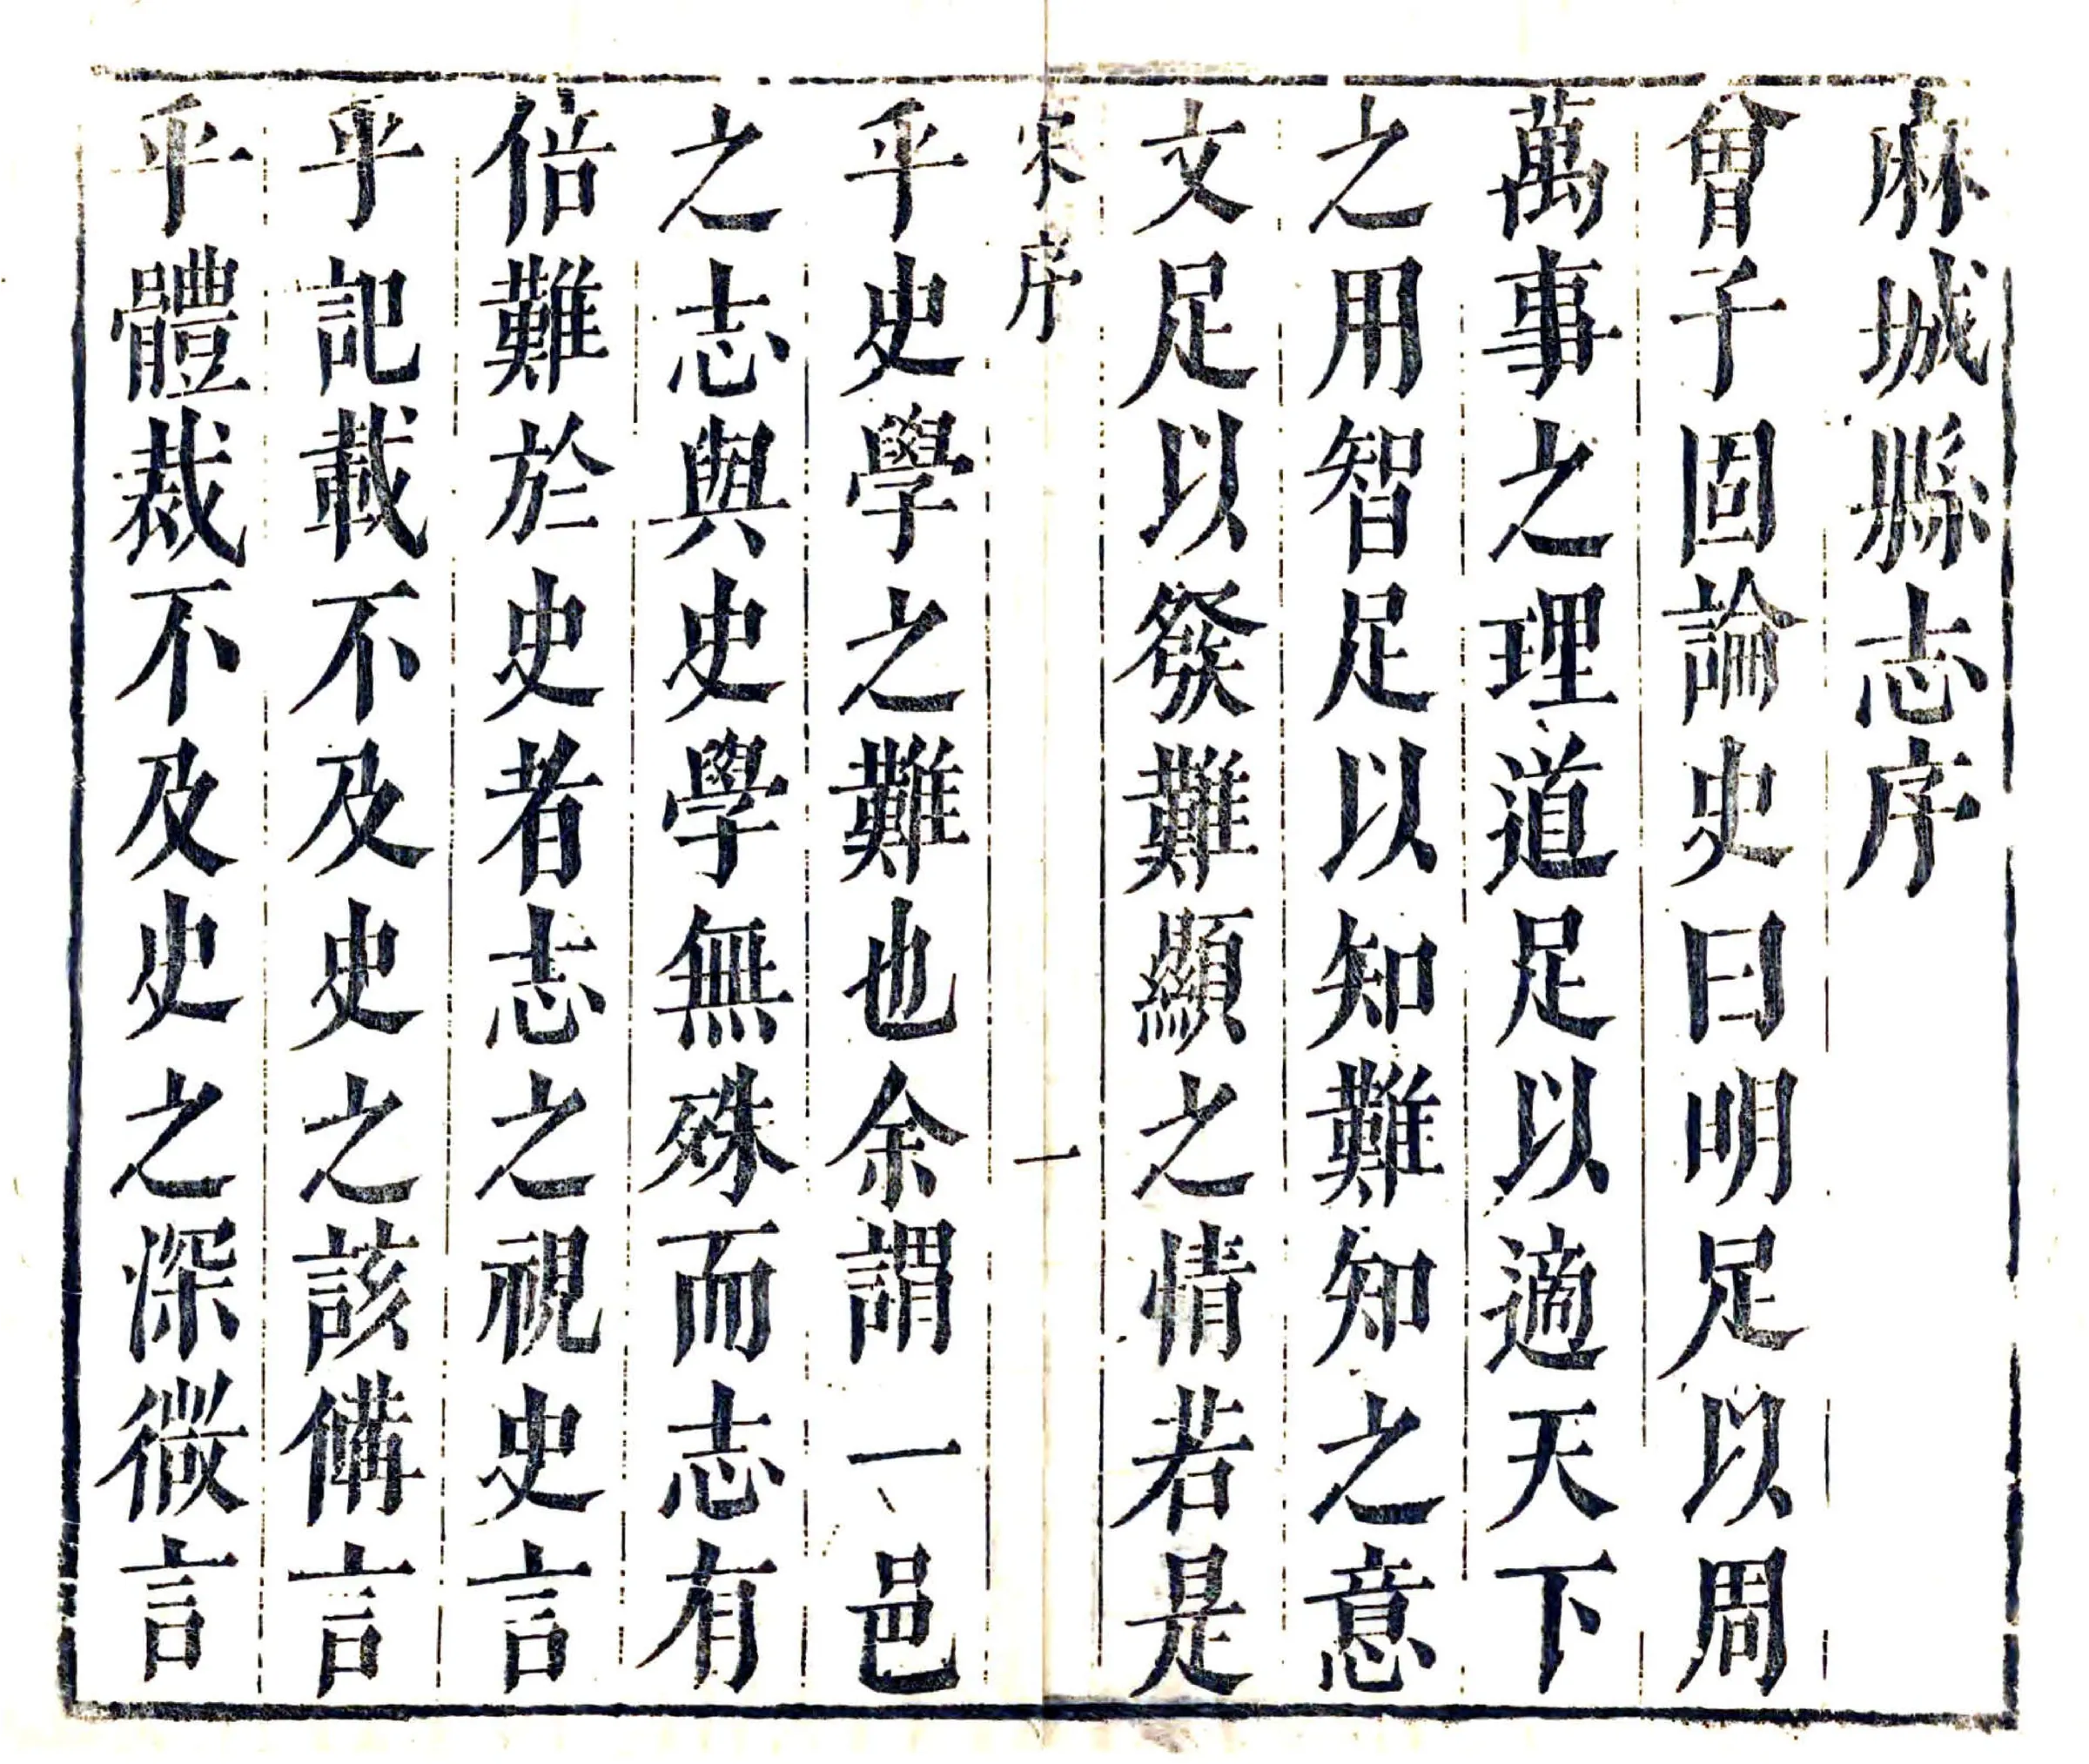 麻城縣志序
曾子固論史曰明足以周
萬事之理道足以適天下
之用智足以知難知之意
文足以發難顯之情若是
宋序
一
乎史學之難也余謂一邑
之志與史學無殊而志有
倍難於史者志之視史言
乎記載不及史之該備言
乎體裁不及史之深微言